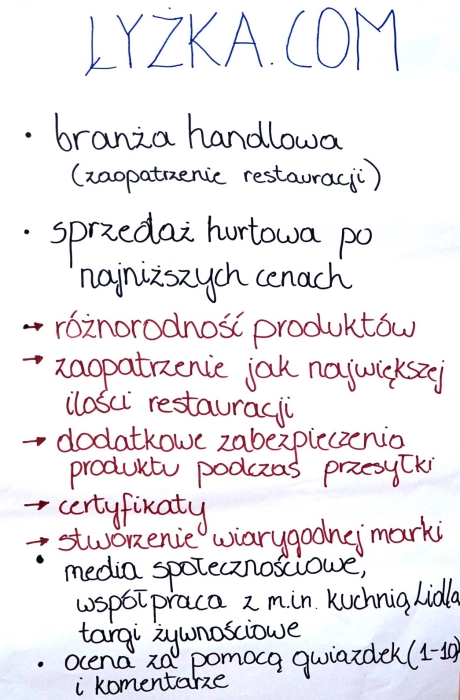 ŁYŻKA.COM
• branża handlowa
(zaopatrzenie restauracji)
• sprzedaż hurtowa po
najniższych cenach
→ różnorodność produktów
→ zaopatrzenie jak największej
ilości restauracji
→ dodatkowe zabezpieczenia
produktu podczas przesyłki
→ certyfikaty
→ stworzenie wiarygodnej marki
• media społecznościowe,
współpraca z m.in. kuchnią Lidla
targi żywnościowe
• ocena za pomocą gwiazdek (1-10)
i komentarze